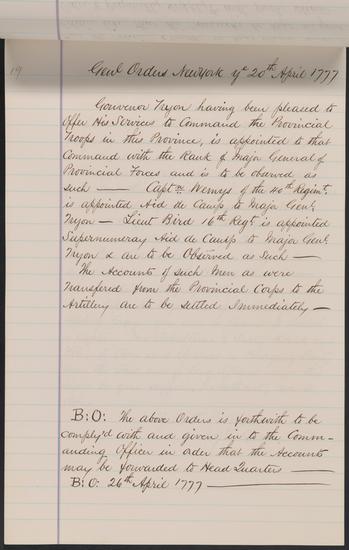 19
Genl Orders Newyork ye 20th April 1777
Gouvenor Tryon having been pleased to
offer His Services to Command the Provincial
Troops in this Province, is appointed to that
Command with the Rank of Major General of
Provincial Forces and is to be obsered as
such — Captn Wemeys of the 40th Regimt.
is appointed Aid de Camp to Major Genl.
Tryon — Lieut Bird 16th Regt is appointed
Supernumeray Aid de Camp to Major Genl.
Tryon & are to be Observed as Such —
The Accounts of such Men as were
Transfered from the Provincial Corps to the
Artillery are to be settled Immediately —
B:O: The above Orders is forthwith to be
comply'd with and given in to the Comm-
anding Officer in order that the Accounts
may be forwarded to Head Quarters —
B: O: 26th April 1777 —